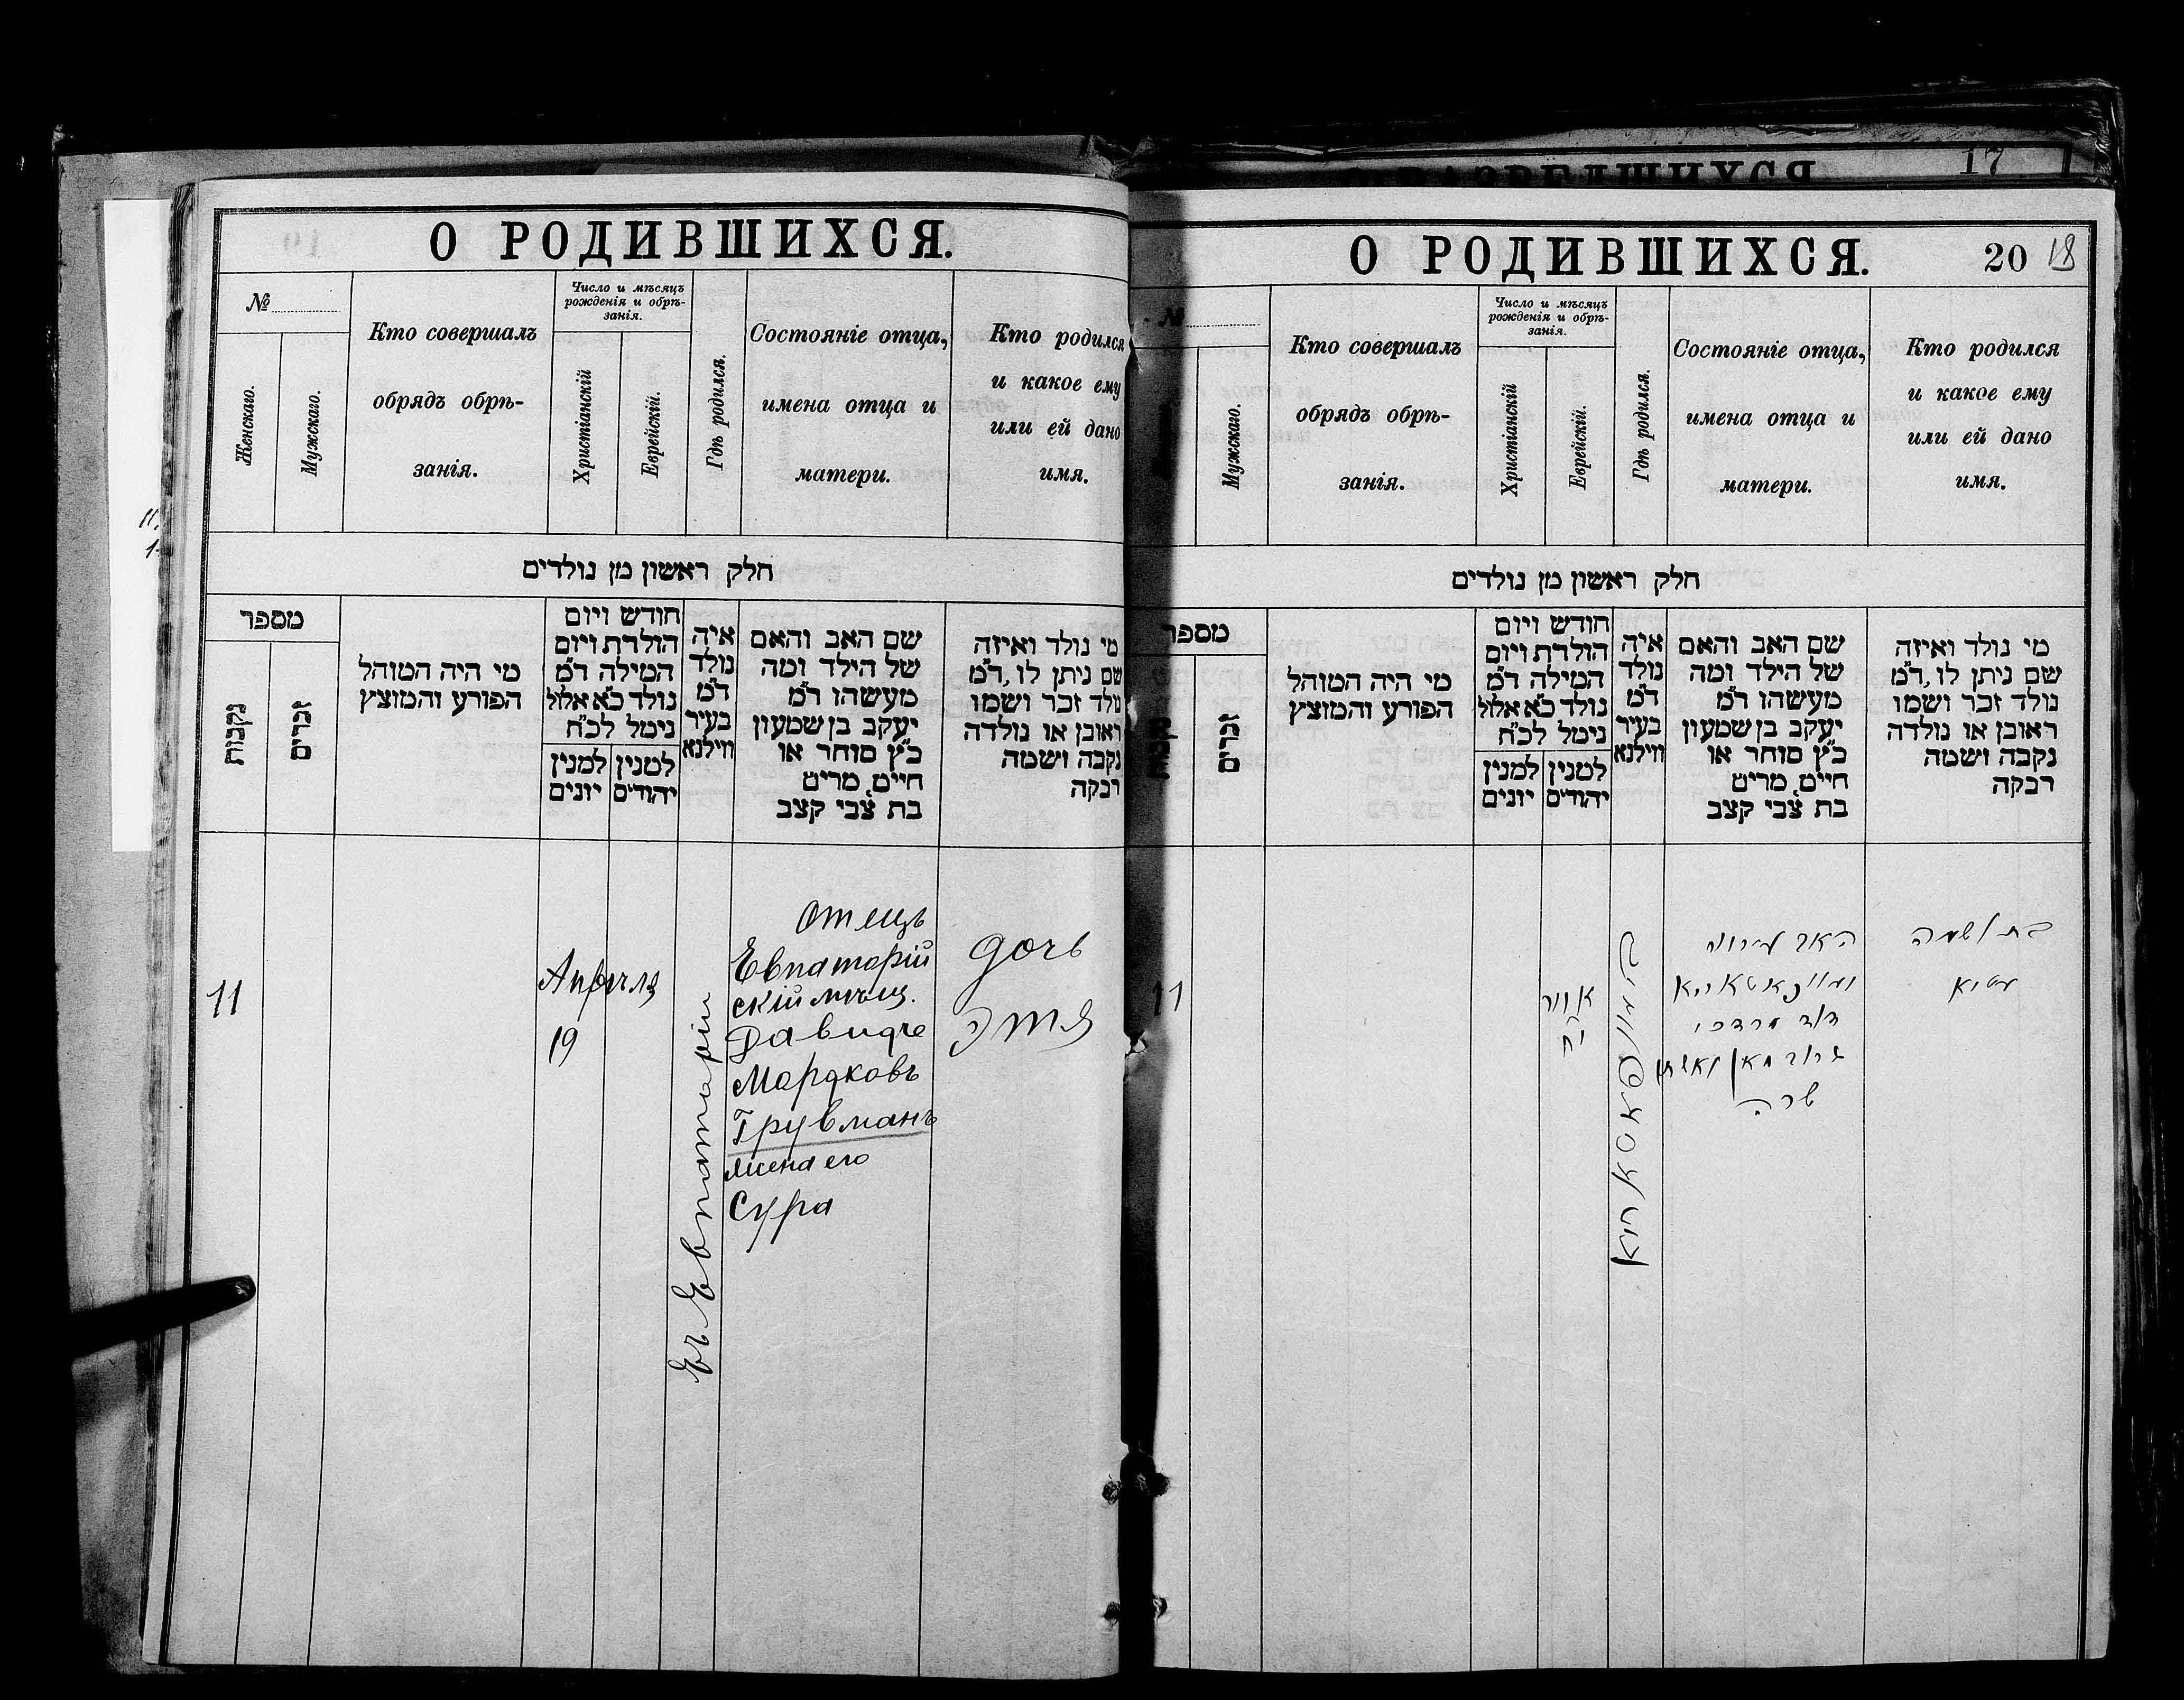 О РОДИВШИХСЯ.
№
Женскаго.
Мужскаго.
Кто совершалъ
обрядъ обрѣ-
занія.
Число и мѣсяцъ
рожденія и обрѣ-
занія.
Христіанскій
Еврейскій.
Гдѣ родился.
Состояніе отца,
имена отца и
матери.
Кто родился
и какое ему
или ей дано
имя.
חלק ראשון מן נולדים
מספר
נקבות
זכרים
מי היה המוהל
הפורע והמוצץ
חודש ויום
הולדת ויום
המילה ד״מ
נולד כ״א אלול
נימל לכ״ח
למנין יהודים
למנין יונים
איה
נולד
ד״מ
בעיר
ווילנא
שם האב והאם
של הילד ומה
מעשהו ד״מ
יעקב בן שמעון
כ״ץ סוחר או
חייט, מרים
בת צבי קצב
מי נולד ואיזה
שם ניתן לו, ד״מ
נולד זכר ושמו
ראובן או נולדה
נקבה ושמה
רבקה
11
Апрѣля
19
Въ Евпаторіи
Отецъ
Евпаторій
скій мѣщ.
Давидъ
Мордковъ
Грувманъ
жена его
Сура
дочь
Этя
17
О РОДИВШИХСЯ.
20 18
№
Мужскаго.
Кто совершалъ
обрядъ обрѣ-
занія.
Число и мѣсяцъ
рожденія и обрѣ-
занія.
Христіанскій
Еврейскій.
Гдѣ родился.
Состояніе отца,
имена отца и
матери.
Кто родился
и какое ему
или ей дано
имя.
חלק ראשון מן נולדים
מספר
זכרים
מי היה המוהל
הפורע והמוצץ
חודש ויום
הולדת ויום
המילה ד״מ
נולד כ״א אלול
נימל לכ״ח
למנין יהודים
למנין יונים
איה
נולד
ד״מ
בעיר
ווילנא
שם האב והאם
של הילד ומה
מעשהו ד״מ
יעקב בן שמעון
כ״ץ סוחר או
חייט, מרים
בת צבי קצב
מי נולד ואיזה
שם ניתן לו, ד״מ
נולד זכר ושמו
ראובן או נולדה
נקבה ושמה
רבקה
11
דוד מרדכי
שרה
בת ושמה
עטיא